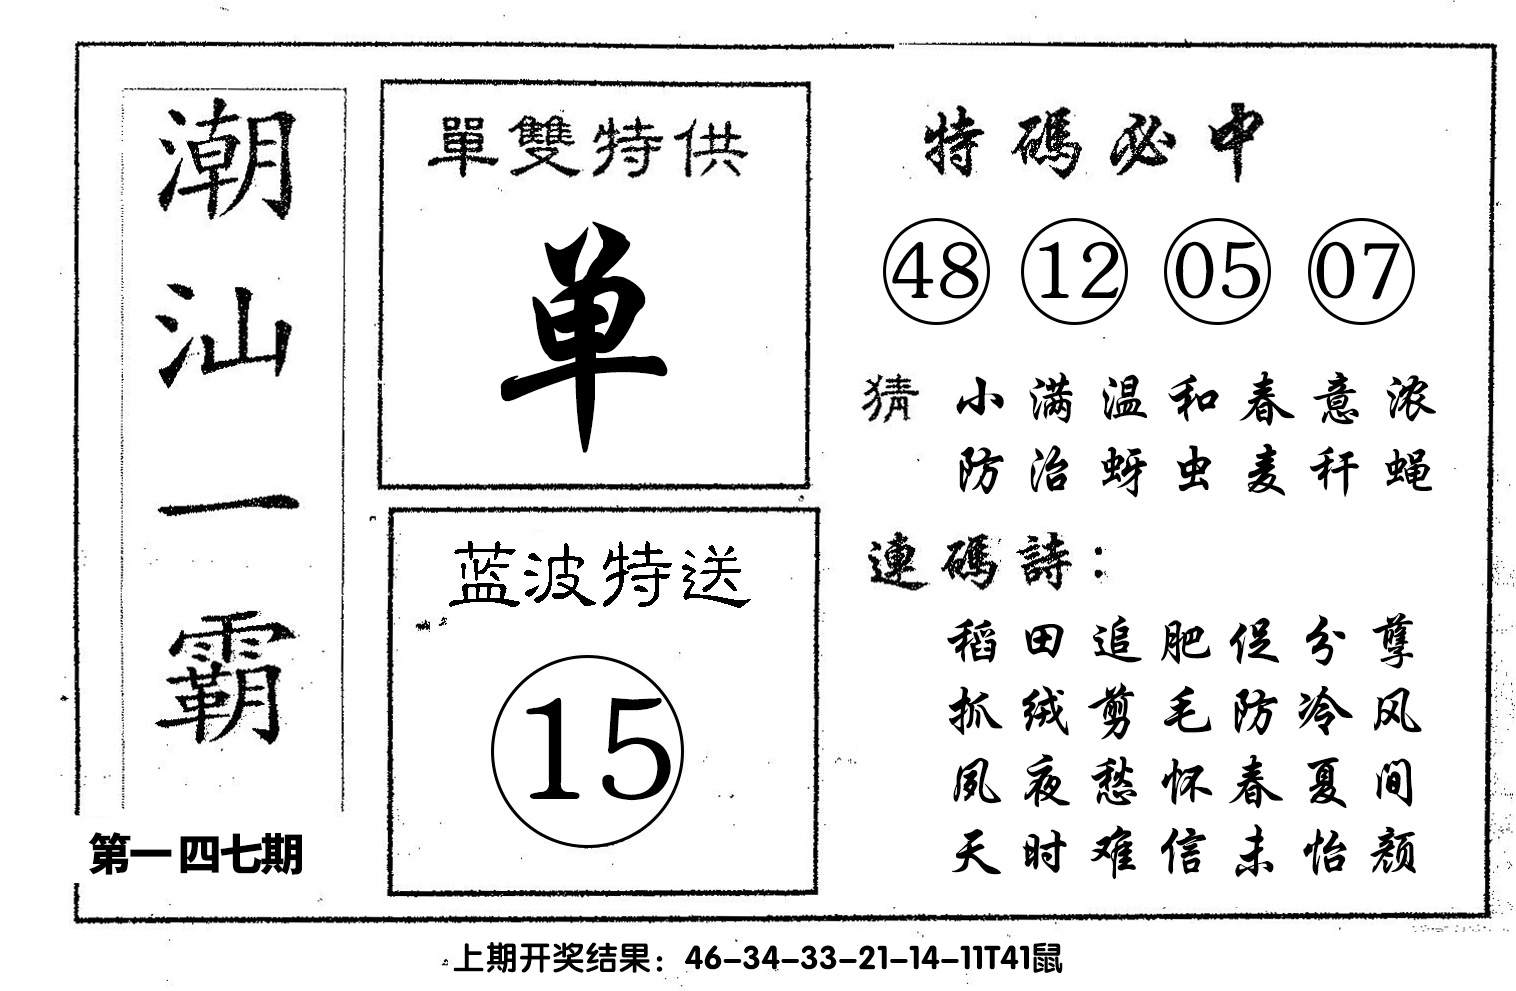 潮汕一霸
第一四七期
單雙特供
单
蓝波特送
15
特碼必中
48 12 05 07
猜 小满温和春意浓
防治蚜虫麦秆蝇
連碼詩：
稻田追肥促分孽
抓绒剪毛防冷风
夙夜愁怀春夏间
天时难信未怡颜
上期开奖结果：46-34-33-21-14-11T41鼠